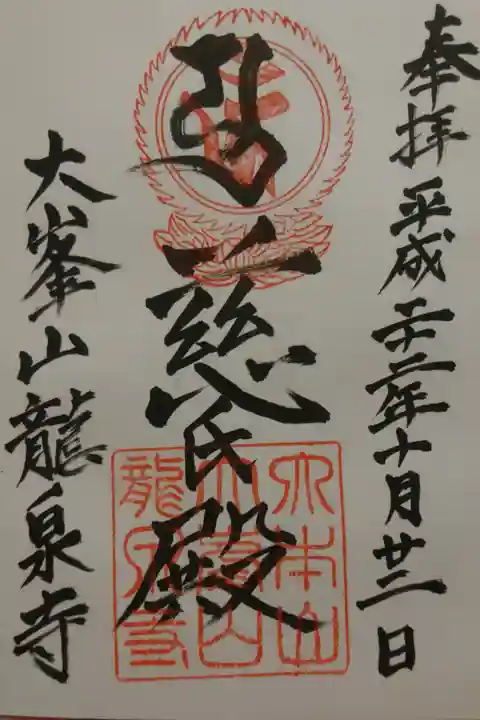 奉拝 平成二十二年十月廿二日
慈氏殿
大峯山龍泉寺
大本山
大峯山
龍泉寺